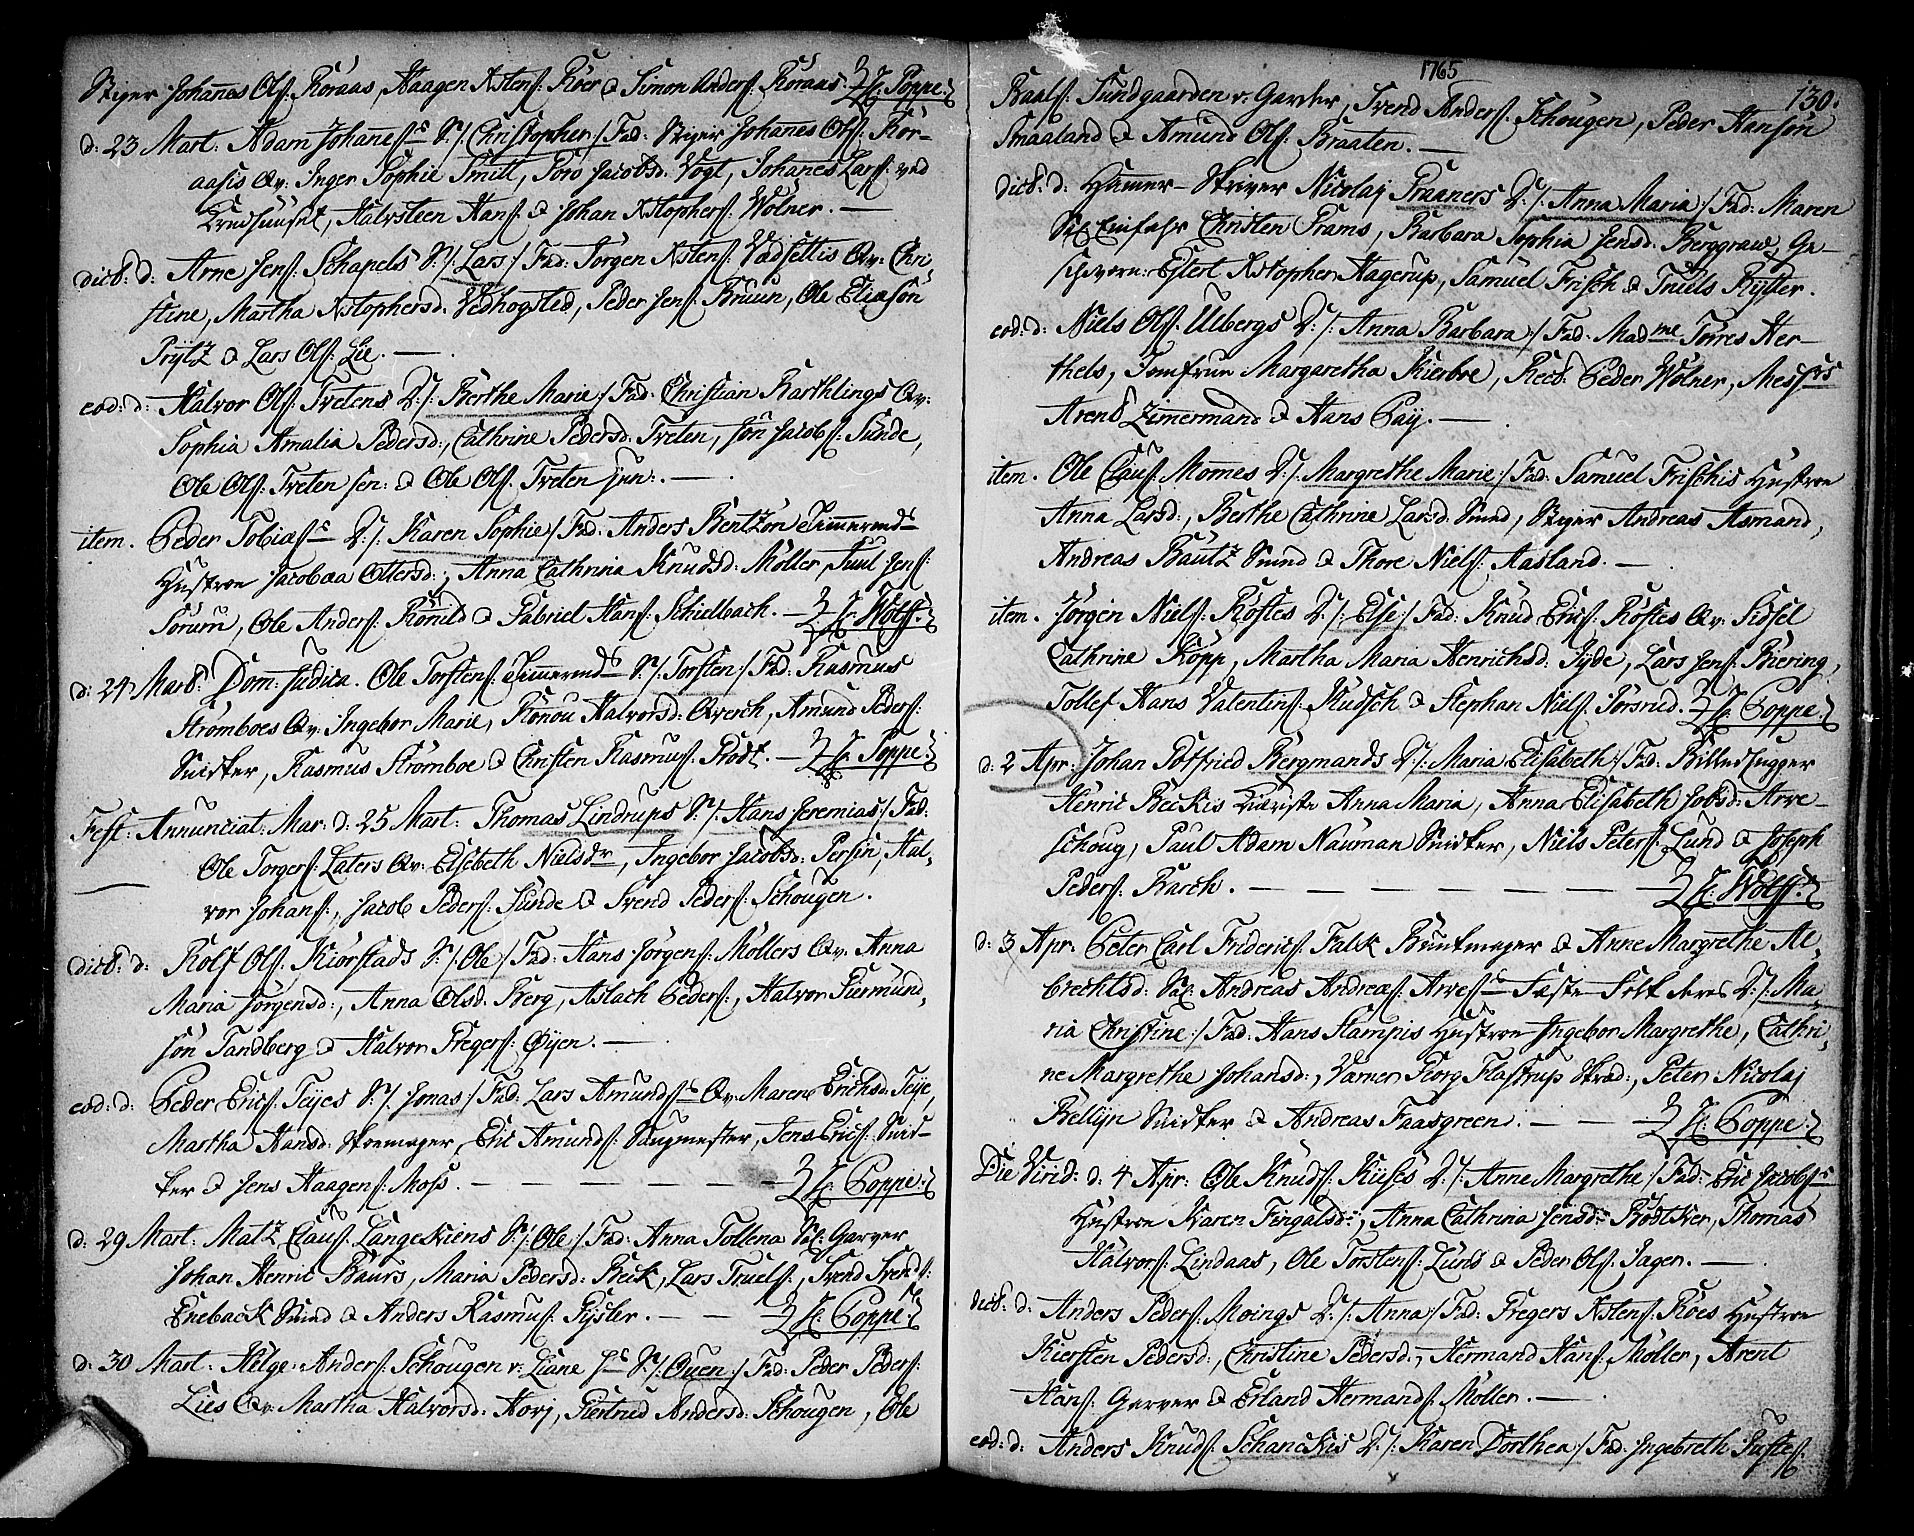 Stiger Johannes Ols: Roraas, Haagen Xstens: Röer & Simon Anders: Roraas. H: Poppe.
d: 23 Mart. Adam Johanes S:/: Christopher:/ Fad: Stiger Johannes Ols: Ror-
aasis Qv: Inger Sophie Smitt, Jacobsd: Vogt, Johanes Lars: ved
Halvsteen Hans: & Johan Xstophers: Wölner. —
dict: d: Arne Jens: Schapels S:/: Lars:/ Fad: Jörgen Xstens: Qv: Chri-
stine, Martha Xstophersd: Vedhogsted, Peder Jens: Bruun, Ole Eliasön
Prytz & Lars Ols: Lie. —
eod: d: Halvor Ols: Tvetens D:/: Berthe Marie:/ Fad: Christian Barthlings Qv:
Sophia Amalia Pedersd:, Cathrine Pedersd: Tveten, Jön Jacobs: Sunde,
Ole Ols: Tveten sen: & Ole Ols: Tveten jun: —
item. Peder Tobias D:/: Karen Sophie:/ Fad: Anders Bentzön Timmermds
Hustroe Jacobæa Ottersd:, Anna Cathrina Knudsd: Möller, Juul Jens:
Sörum, Ole Anders: & Gabriel Hans: Schielbach. — H: Wolff.
d: 24 Mart: Dom: Judica. Ole Torstens: Timmermds S:/: Torsten:/ Fad: Rasmus
Strömboes Qv: Ingebor Marie, Rönou Halvorsd: Amund Peders:
Snidker, Rasmus Strömboe & Christen Rasmus: Brodt. — H: Poppe.
Fest: Annunciat: Mar: d: 25 Mart: Thomas Lindrups S:/: Hans Jeremias:/ Fad:
Ole Torgers: Laters Qv: Elsebeth Nielsdr, Ingebor Jacobsd: Persin, Hal-
vor Johans:, Jacob Peders: Sunde & Svend Peders: Schougen.
dict: d: Rolf Ols: Kiörstads S:/: Ole:/ Fad: Hans Jörgens: Möllers Qv: Anna
Maria Jörgensd:, Anna Olsd: Berg, Aslach Peders:, Halvor Giermund-
sön Tandberg & Halvor Gregers: Öyen. —
eod: d: Peder Erics: Teyes S:/: Jonas:/ Fad: Lars Amunds Qv: Maren Erichsd: Teye,
Martha Hansd: Skoemager, Eric Amunds: Saugmester, Jens Erics: Snid-
ker & Jens Haagens: Moss. — H: Poppe.
d: 29 Mart. Matz Claus: Langekiens S:/: Ole:/ Fad: Anna Tollena Sal: Garver
Johan Henric Baurs, Maria Pedersd: Beck, Lars Truels:, Svend Svends:
Eneback Smed & Anders Rasmus: Gysler. — — H: Poppe.
d: 30 Mart: Helge Anders: Schougen v: Liane S:/: Ouen:/ Fad: Peder Peders:
Lies Qv: Martha Halvorsd: Giertrud Andersd: Schougen, Ole
1765
130.
Paals: Sundgaarden v: Garver, Svend Anders: Schougen, Peder Hansön
Smaaland & Amund Ols: Braaten. —
dict: d: Hammer-Skriver Nicolaj Praaners D:/: Anna Maria:/ Fad: Maren
Sal: Einfahr Christen Prams, Barbara Sophia Jensd: Berggraw, Ge-
schvorn: Eylert Xstopher Hagerup, Samuel Frisch & Truels Rytter.
eod: d: Niels Ols: Ulbergs D:/: Anna Barbara:/ Fad: Madme Torres Her-
thels, Jomfrue Margaretha Kierboe, Peder Wölner, Messrs
Arent Zimermand & Hans Pay. —
item. Ole Claus: Momes D:/: Margrethe Marie:/ Fad: Samuel Frischis Hustroe
Anna Larsd:, Berthe Cathrine Larsd: Smed, Stiger Andreas Asmand,
Andreas Bautz Smed & Thore Niels: Aasland. —
item. Jörgen Niels: Röstes D:/: Else:/ Fad: Knud Erics: Röstes Qv: Sidsel
Cathrine Kopp, Martha Maria Henrichsd: Gyde, Lars Jens: Biering,
Tollef Hans: Valentins: & Stephan Niels: Forsrud. H: Poppe.
d: 2 Apr: Johan Gotfried Bergmands D:/: Maria Elisabeth:/ Fad: Billedhugger
Henric Beckis Kiæriste Anna Maria, Anna Elisabeth Jobsd: Arve-
schoug, Paul Adam Nauman Snidker, Niels Peters: Lund & Joseph
Peders: Barth. — — — — — H: Wolff.
d: 3 Apr: Peter Carl Friderics: Falck Buntmager & Anne Margrethe Al-
brechtsd: Sal: Andreas Andreas: Fæste Folk deres D:/: Ma-
ria Christine:/ Fad: Hans Stampis Hustroe Ingebor Margrethe, Cathri-
ne Margrethe Johansd:, Værner Georg Flastrup Skræd:, Peter Nicolaj
Bellyn Snidker & Andreas Faasgreen. — — H: Poppe.
Die Virid: d: 4 Apr: Ole Knuds: D:/: Anne Margrethe:/ Fad: Eric Jacobs
Hustroe Karen Fingalsd:, Anna Cathrina Jensd: Bödtker, Thomas
Halvors: Lindaas, Ole Torstens: Lund & Peder Ols: Jager. —
dict: d: Anders Peders: Moings D:/: Anna:/ Fad: Gregers Xstens: Röes Hustroe
Kiersten Pedersd:, Christine Pedersd:, Hermand Hans: Möller, Arent
Hans: Garver & Erland Hermands: Möller. —
eod: d: Anders Knuds: Schanckis D:/: Karen Dorthea:/ Fad: Ingebreth